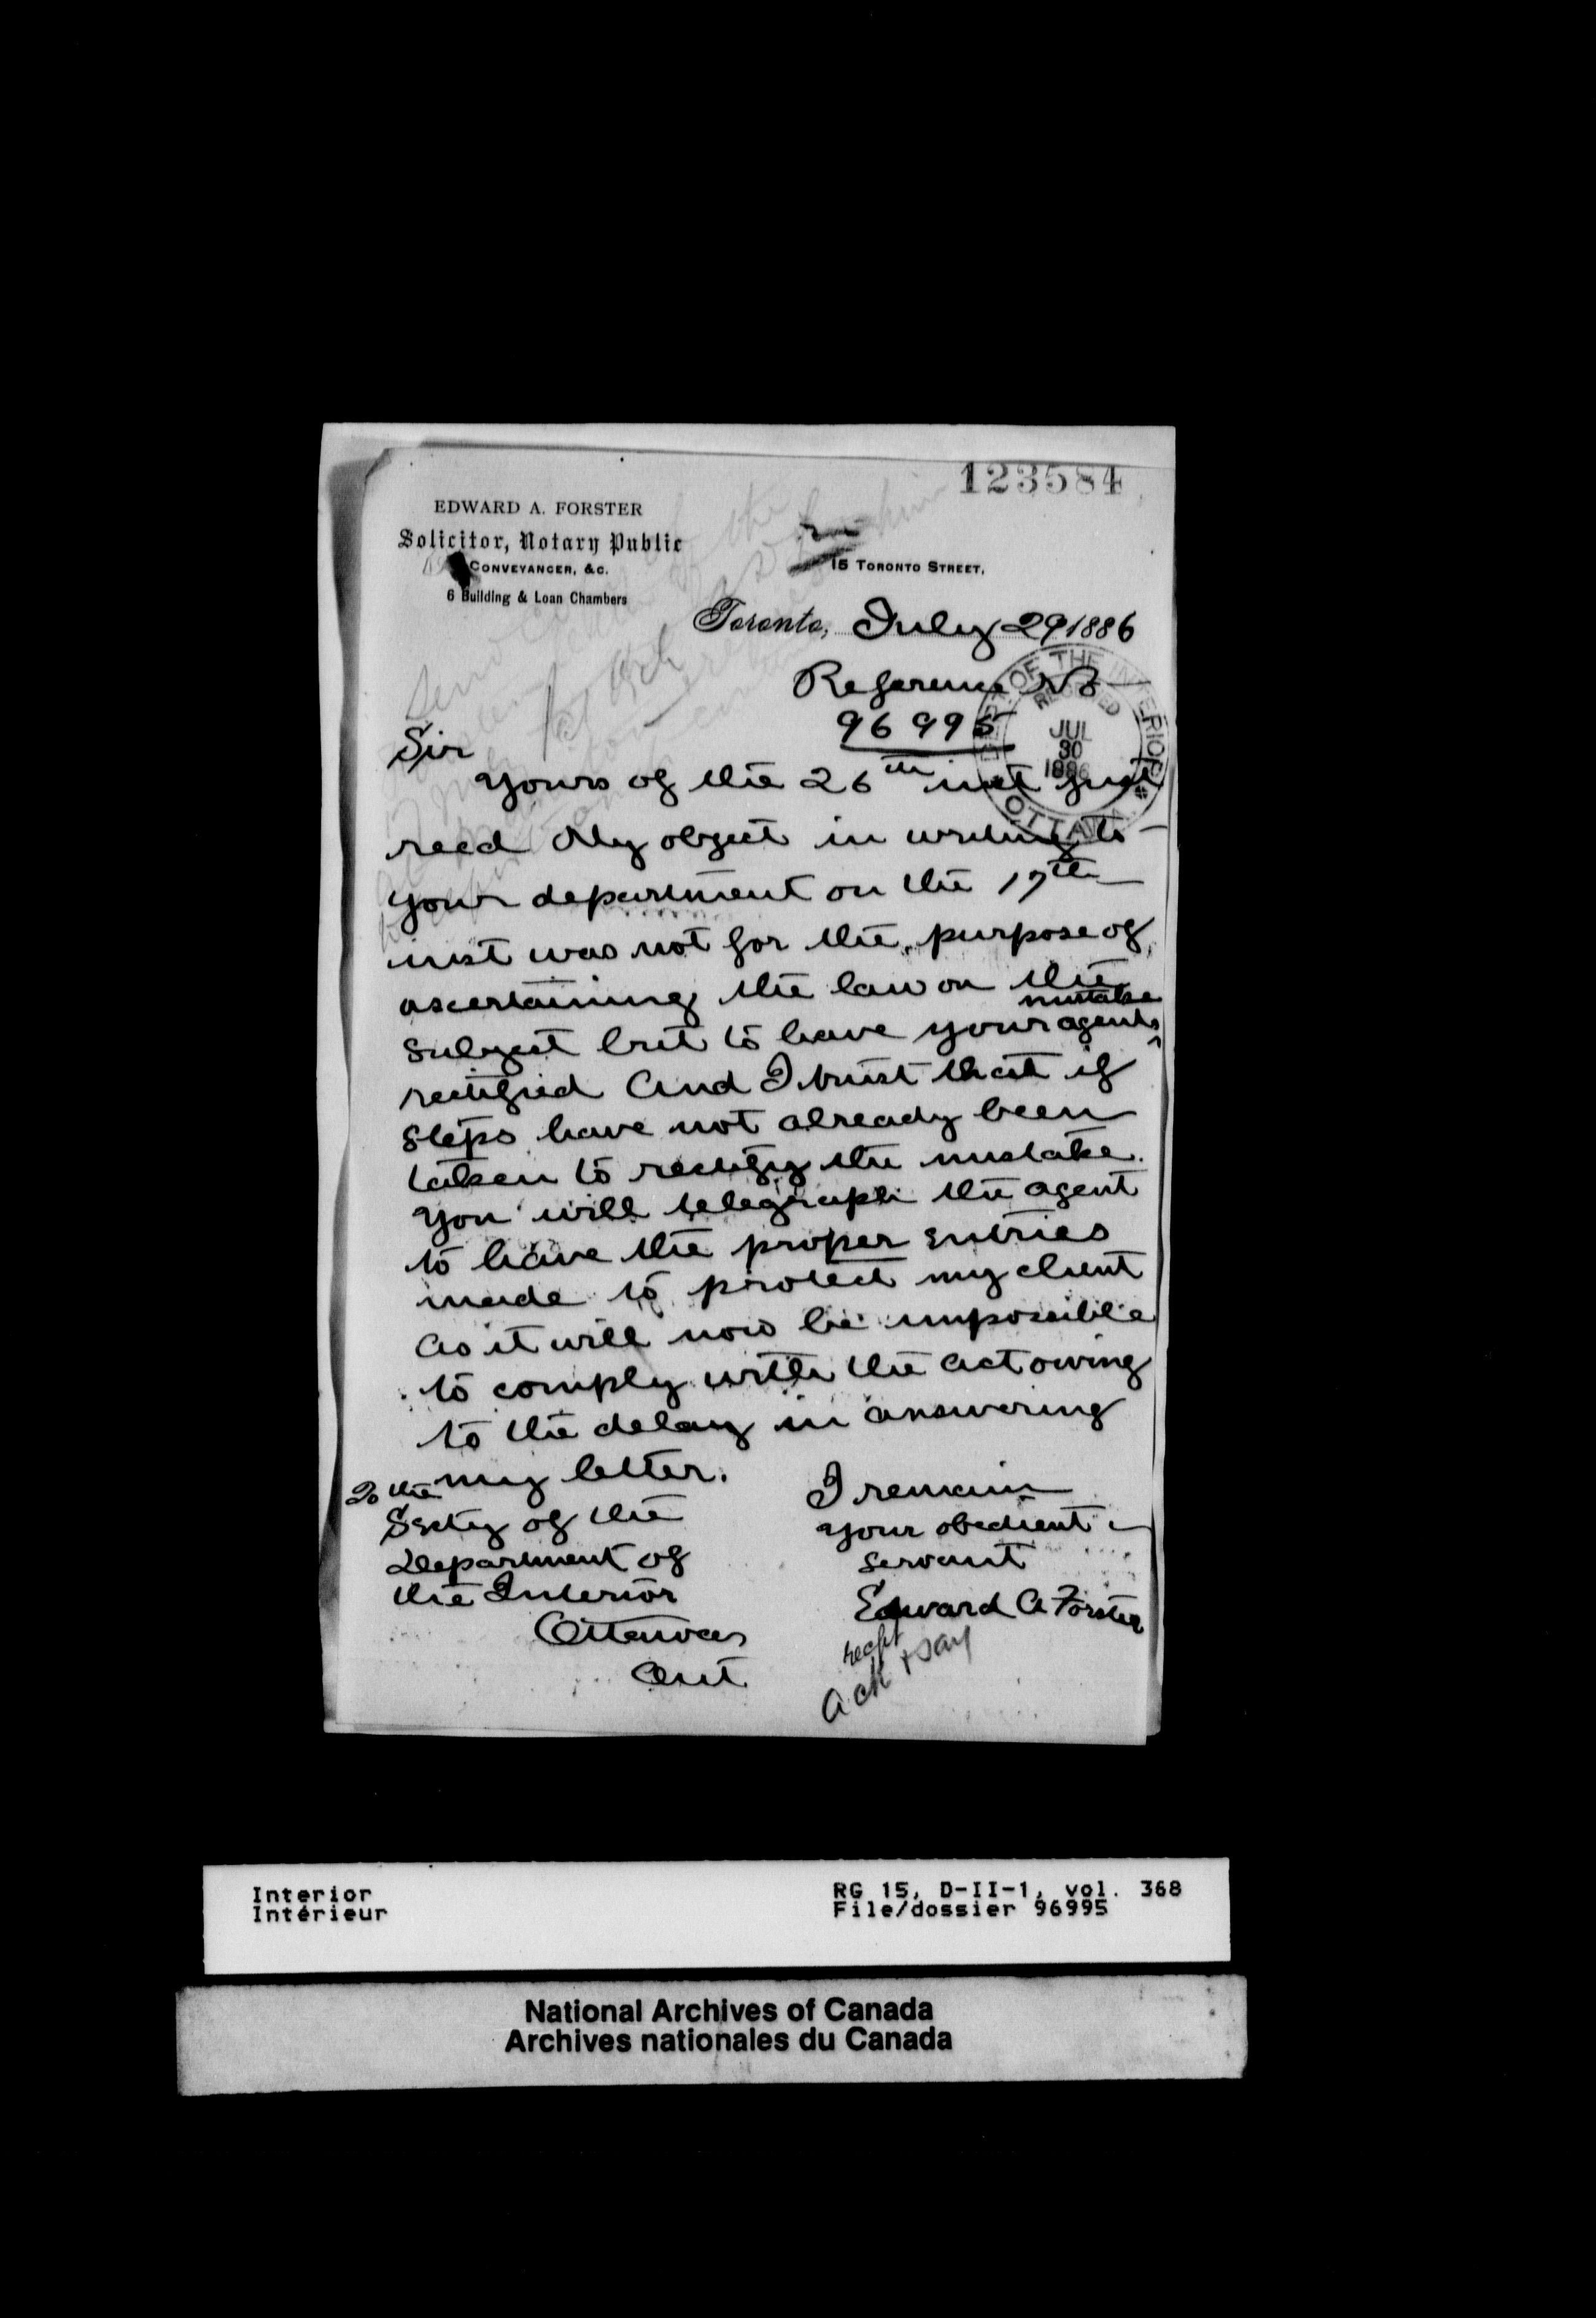 123584
EDWARD A. FORSTER
Solicitor, Notary Public
CONVEYANCER, &C.
6 Building & Loan Chambers
15 TORONTO STREET,
Toronto, July 29 1886
Reference No
96995
DEPT OF THE INTERIOR
RECEIVED
JUL
30
1886
OTTAWA
Sir
Yours of the 26th inst just
recd My object in writing to
your department on the 17th
inst was not for the purpose of
ascertaining the law on the
mistake
subject but to have your agents
rectified And I trust that if
steps have not already been
taken to rectify the mistake.
you will telegraph the agent
to have the proper entries
made to protect my client
as it will now be impossible
to comply with the act owing
to the delay in answering
my letter.
I remain
your obedient
servant
Edward A Forster
To the
Secty of the
Department of
the Interior
Ottawa
Ont
recpt
Ack & say
Interior
Intérieur
RG 15, D-II-1, vol. 368
File/dossier 96995
National Archives of Canada
Archives nationales du Canada